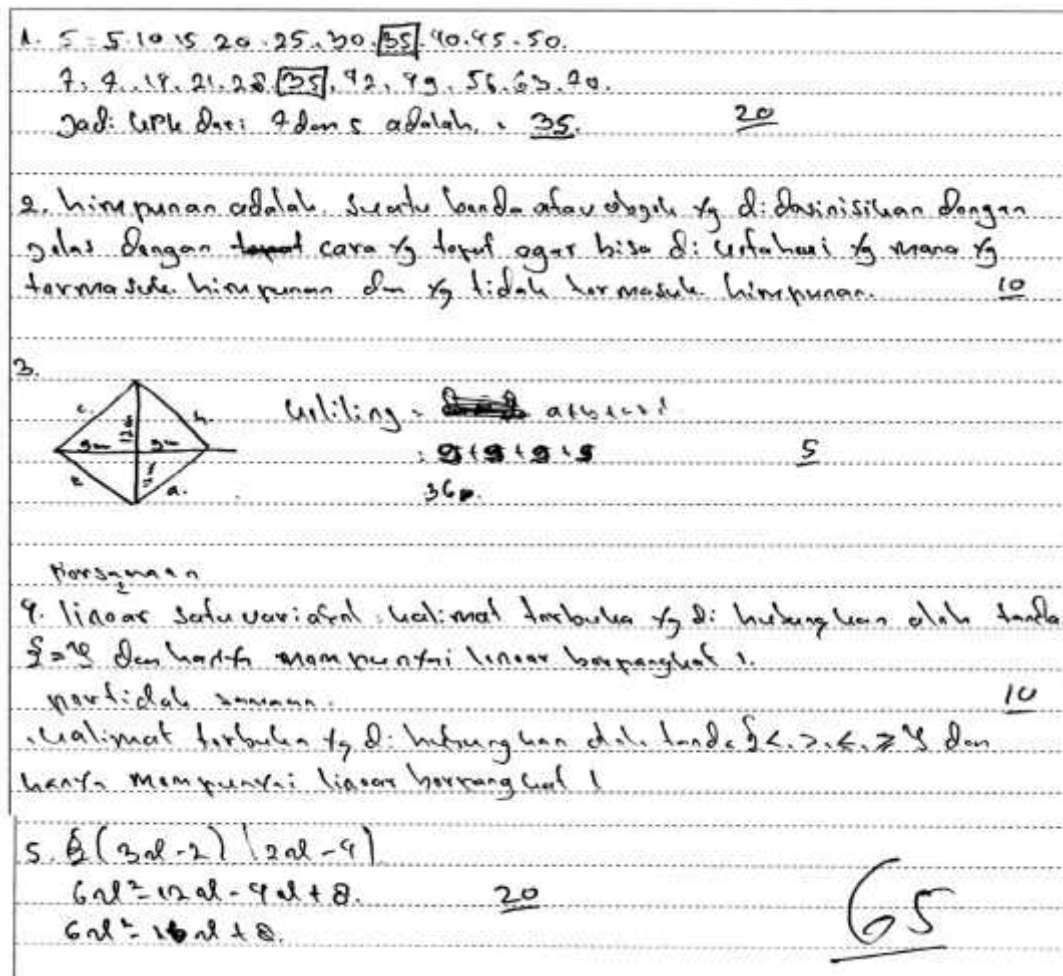 1. 5 = 5.10.15.20.25.30.35.40.45.50.
7. 7..14.21.28.35.42.49.56.63.70.
Jadi KPK dari 7 dan 5 adalah. 35. 20
2. himpunan adalah. suatu benda atau obyek yg di definisikan dengan
jelas dengan cara yg tepat agar bisa di ketahui yg mana yg
termasuk himpunan dan yg tidak termasuk himpunan. 10
3.
c. 12 b.
9m 9m
e 12 a.
Keliling = a+b+c+
: 9+9+9+9 5
36
Persamaan
4. linear satu variabel : kalimat terbuka yg di hubungkan oleh tanda
{=} dan hanya mempunyai linear berpangkat 1.
pertidak samaan. 10
kalimat terbuka yg di hubungkan oleh tanda {<.>.≤.≥} dan
hanya mempunyai linear berpangkat 1
5. (3x-2) (2x-4)
6x²-12x-4x+8. 20
6x²-16x+8. 65